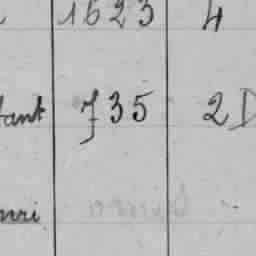 1623 4
fant 735 2D
nri